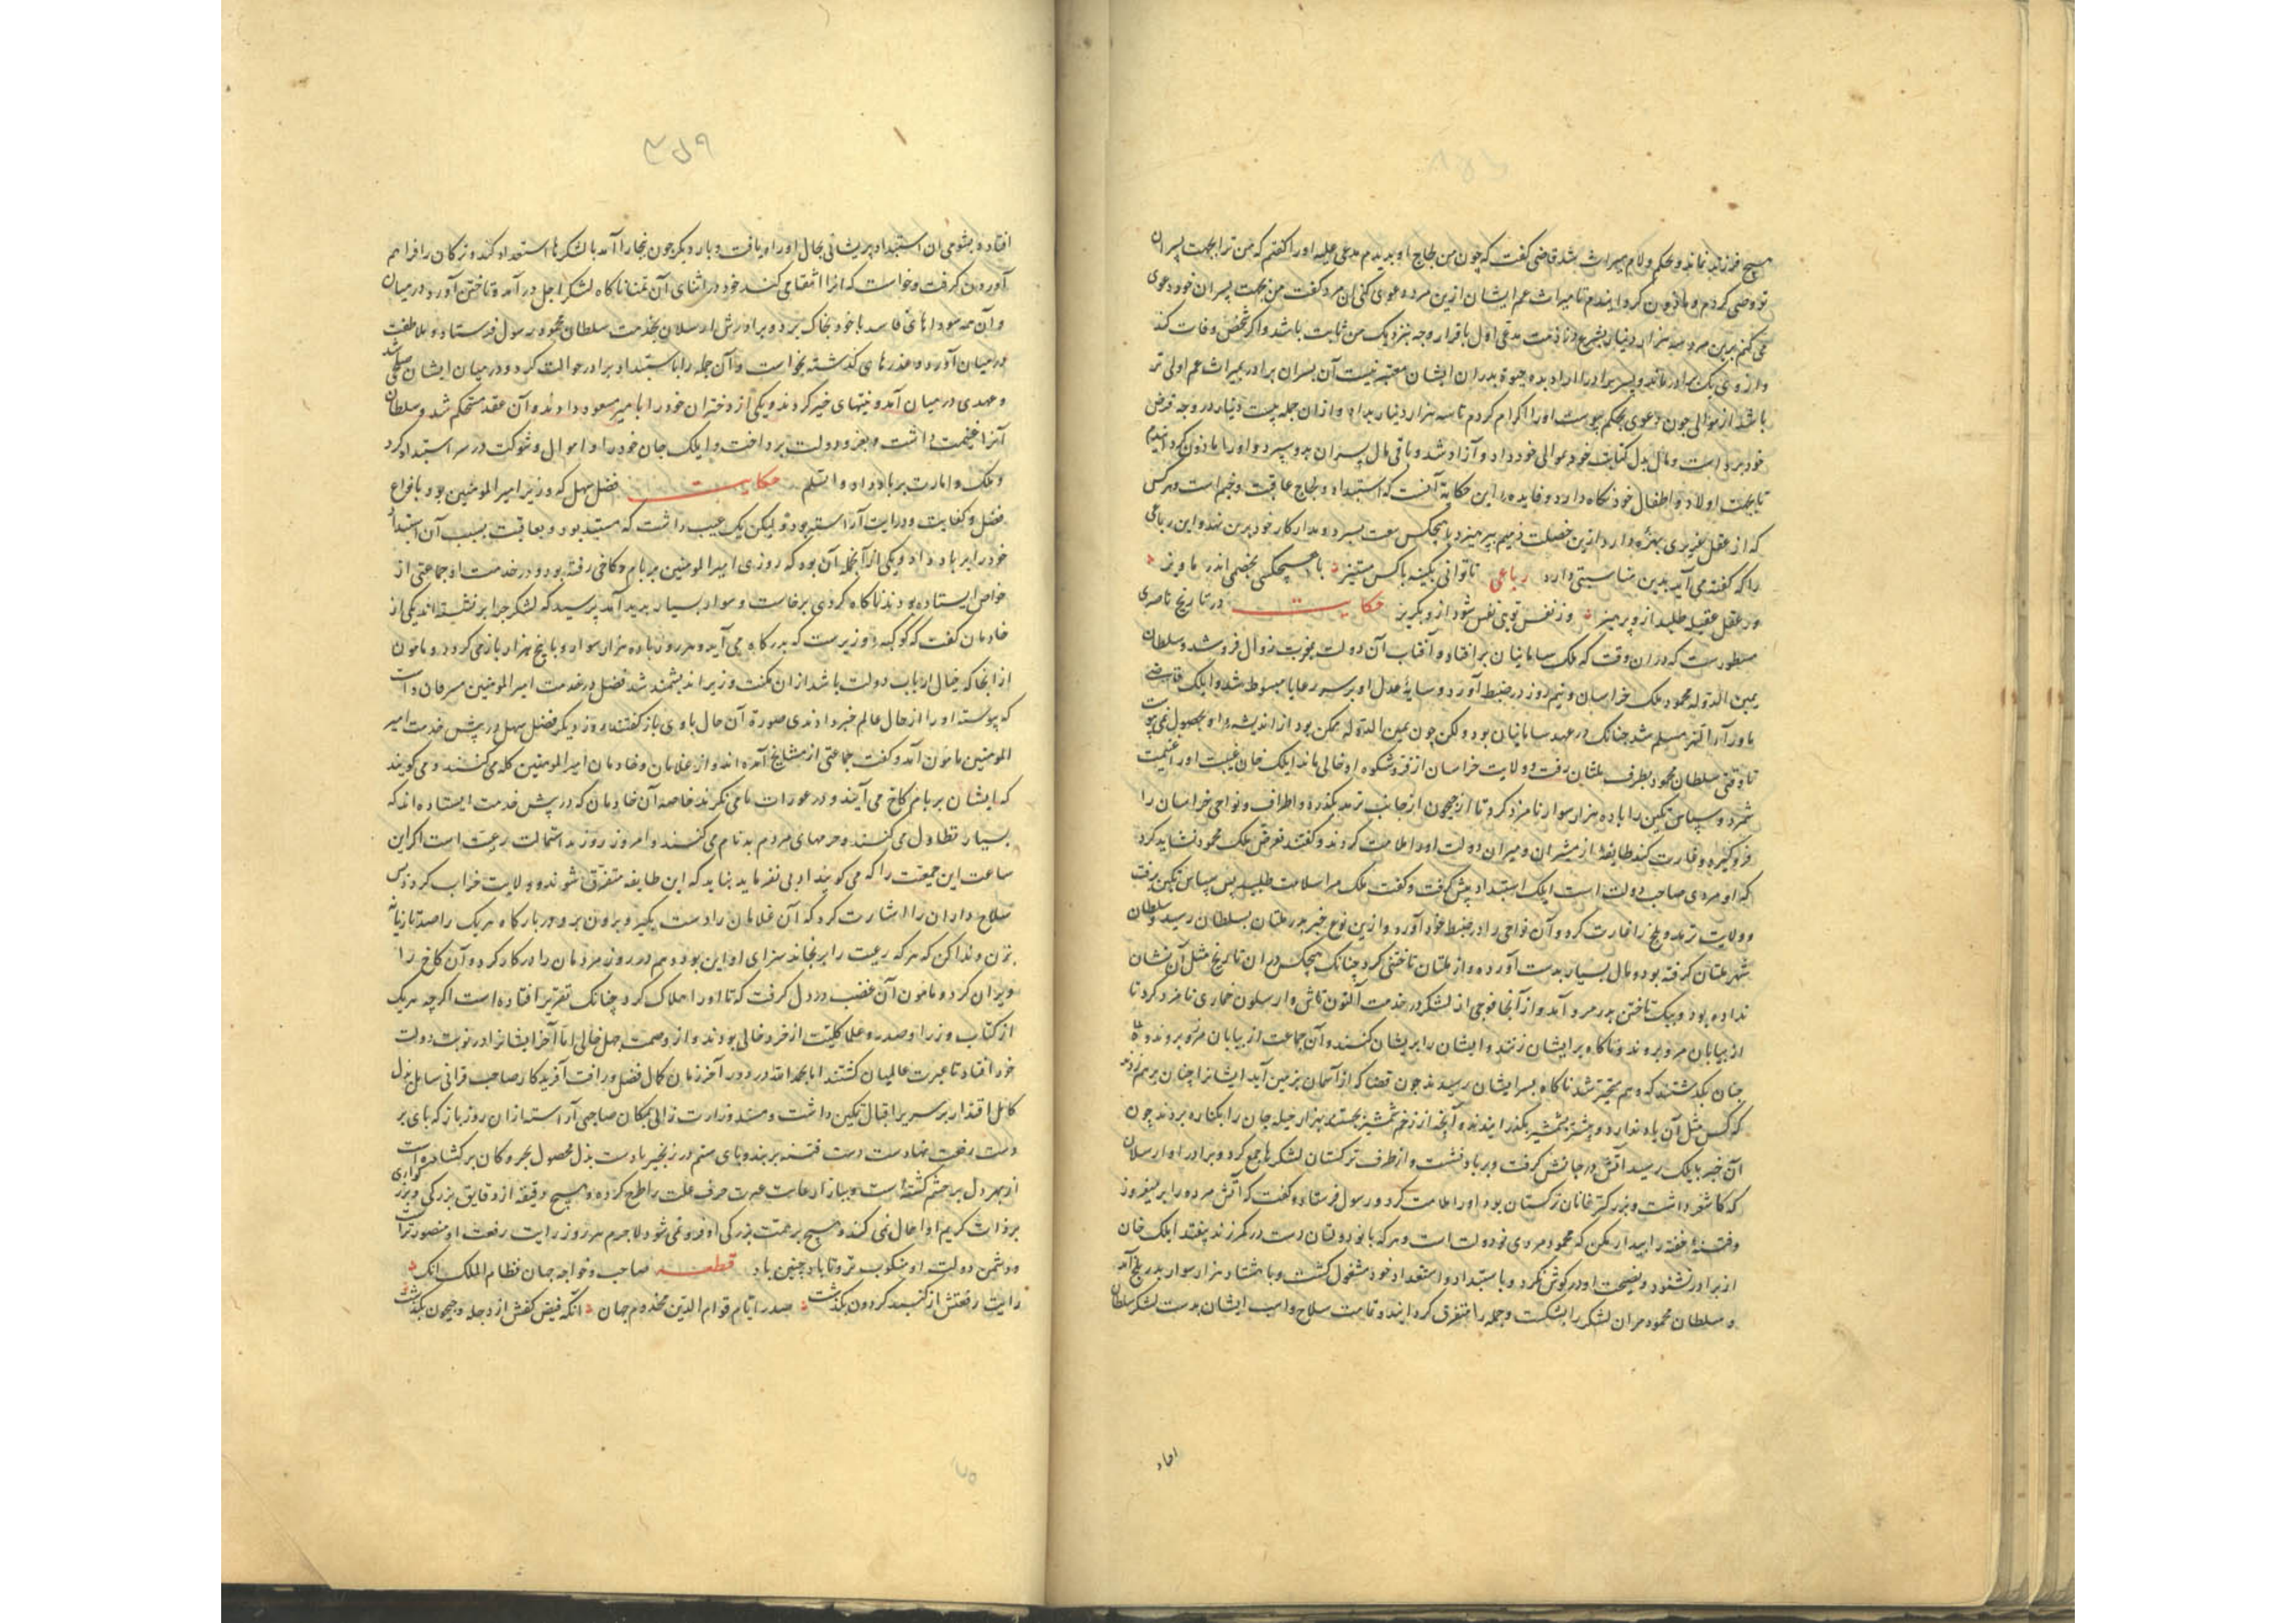 هیچ فرزند نماند و بحکم ولا م میراث بشد قاضی گفت که چون من لجاج او بدیدم مدعی علیه اورا گفتم که من ترا بجهت پسران
تو وصی کردم و ماذون کردانیدم تا میراث عم ایشان ازین مرد دعوی کنی آن مرد گفت من بجهت پسران خود دعوی
می کنم برین مرد سه هزار دینار بشرع و ذمت مدعی اول باقرار وجه بنزدیک من ثابت باشد و اکر شخصی وفات کند
و از وی یک برادر ماند و پسر برادر را ارا ده حیوة بدران ایشان معتبر نیست آن پسران برادر بمیراث عم اولی تر
باشد از موالی جون دعوی بحکم پیوست اورا اکرام کردم تا سه هزار دینار بداد و از ان جمله بیست دینار در وجه قرض
خود برداشت و مال بدل کتابت خود بموالی خود داد و آزاد شد و باقی مال پسران بدو سپرد و اورا ماذون کردانیدم
تا بجهت اولاد و اطفال خود نکاه دارد و فایده این حکایة آنست که استبداد و لجاج عاقبت وخیم است و هر کس
که از عقل غریزی بهره دارد ازین خصلت ذمیم بپرهیزد با هیجکس سعت نسپرد و مدار کار خود برین نهد و این رباعی
را که گفته می آید بدین مناسبتی دارد رباعی تا توانی بکینه با کس مستیز با هیچکسی بخصمی اندر ماویز
ور عقل عقیله طلبد ازو پرهیز ور نفس تو بی نفس شود ازو بکریز حکایت در تاریخ ناصری
مسطورست که در ان وقت که ملک سامانیان برافتاد و آفتاب آن دولت بغروب زوال فرو شد و سلطان
یمین الدوله محمود ملک خراسان و نیم روز در ضبط آورد و سایه عدل او بر سر رعایا مبسوط شد و ایلک
ماوراء النهر مسلم شد چنانک در عهد سامانیان بود و لکن چون یمین الدوله ممکن بود از اندیشه او بحصول نمی پیوست
تا وقتی سلطان محمود بطرف ملتان رفت و ولایت خراسان از فر و شکوه او خالی ماند ایلک خان غیبت او را غنیمت
شمرد و سپاس تکین را با ده هزار سوار نامزد کرد تا از جیحون از جانب ترمد بکذرد و اطراف و نواحی خراسان را
فرو گیرد و غارت کند طایفه از مشیران و میران دولت اورا ملامت کردند و گفتند تعرض ملک محمود نشاید کرد
که او مردی صاحب دولت است ایلک استبداد پیش گرفت و گفت ملک مرا سلامت طلبید پس سپاس تکین برفت
و ولایت ترمد و بلخ را غارت کرد و آن نواحی را در ضبط خود آورد و ازین نوع خبر بدر ملتان بسلطان رسید و سلطان
شهر ملتان گرفته بود و مال بسیار بدست آورده و از ملتان تاختنی کرد چنانک هیچکس در ان تاریخ مثل آن نشان
نداده بود و بیک تاختن بدر مرو آمد و از آنجا فوجی از لشکر در خدمت آلتون تاش و ارسلون خماری نامزد کرد تا
از بیابان مرو بروند و ناکاه بر ایشان زنند و ایشان را پریشان کنند و آن جماعت از بیابان مرو بروند و
چنان بکذشتند که وهم متحیر شد ناکاه بسر ایشان رسیدند چون قضا که از آسمان بزمین آید ایشانرا چنان برهم زدند
که کس مثل آن یاد ندارد و بیشتر بشمشیر بکذرانیدند و آنچه از زخم شمشیر بجستند بهزار حیله جان را بکناره بردند چون
آن خبر بایلک رسید آتش در جانش گرفت و بر باد نشست و از طرف ترکستان لشکرها جمع کرد و برادر او ارسلان
که کاشغر داشت و بزرکتر خانان ترکستان بود اورا ملامت کرد و رسول فرستاد و گفت که آتش مرده را برمیفروز
و فتنه خفته را بیدار مکن که محمود مردی ذو دولت است و هر که با ذو دولتان دست در کمر زند بیفتد ایلک خان
از برادر نشنود و نصیحت او در کوش نکرد و باستبداد و استعداد خود مشغول گشت و با هشتاد هزار سوار بدر بلخ آمد
و سلطان محمود مران لشکر را بشکست و جمله را متفرق کردانید و تمامت سلاح و اسب ایشان بدست لشکر سلطان
افتاد
۳۵۹
افتاد و بشومی آن استبداد پریشانی بحال او راه یافت و بار دیگر چون بخارا آمد با لشکرها استعداد کند و ترکان را فراهم
آوردن گرفت و خواست که آنرا انتقامی کند خود در اثنای آن تمنا ناکاه لشکر اجل در آمد و تاختن آورد در میان
و آن همه سوداهای فاسد با خود بخاک برد و برادرش ارسلان بخدمت سلطان محمود رسول فرستاد و ملاطفت
در میان آورد و عذرهای گذشته بخواست و آن جمله را باستبداد برادر حوالت کرد و در میان ایشان صلحی شد
و عهدی در میان آمد و نیتهای خیر کردند و یکی از دختران خود را با میر مسعود دادند و آن عقد مستحکم شد و سلطان
آنرا غنیمت داشت و بغزو و دولت پرداخت و ایلک جان خود را و اموال و شوکت در سر استبداد کرد
و ملک و امارت بر باد داد والسلم حکایت فضل سهل که وزیر امیر المومنین بود بانواع
فضل و کفایت و درایت آراسته بود و لیکن یک عیب داشت که مستبد بود و بعاقبت بسبب آن استبداد
خود را بر باد داد و یکی از آنجمله آن بود که روزی امیر المومنین بر بام کاخی رفته بود و در خدمت او جماعتی از
خواص ایستاده بودند ناکاه کردی برخاست و سوار بسیار پدید آمد پرسید که لشکر چرا برنشسته اند یکی از
خادمان گفت که کوکبه وزیرست که بدرکاه می آید و هر روز با ده هزار سوار و با پنج هزار باز می کردد و مامون
از آنجا که خیال ارباب دولت باشد از ان مکنت وزیر اندیشمند شد فضل در خدمت امیر المومنین مسرفان داشت
که پیوسته او را از حال عالم خبر دادندی صورة آن حال با وی باز گفتند روز دیگر فضل سهل در پیش خدمت امیر
المومنین مامون آمد و گفت جماعتی از مشایخ آمده اند و از غلامان و خادمان امیر المومنین کله می کنند و می کویند
که ایشان بر بام کاخ می آیند و در عورات ما می نکرند خاصه آن خادمان که در پیش خدمت ایستاده اند که
بسیار تطاول می کنند و حرمهای مردم بدنام می کنند و امروز روز بد استمالت رعیت است اکر این
ساعت این جمعیت را که می کویند ادبی نفرماید نباید که این طایفه متفرق شوند و ولایت خراب کردد پس
سلاح داران را اشارت کرد که آن غلامان را دست بکیر و برون بر و در بارکاه هر یک را صد تازیانه
بزن و ندا کن که هر که رعیت را برنجاند سزای او این بود و هم در روز مردمان را در کار کرد و آن کاخ را
ویران کرد و مامون آن غضب در دل گرفت که تا اورا هلاک کرد چنانک تقریر افتاده است اکرچه هریک
از کتاب و وزرا و صدر و علما کلیت از خرد خالی بودند و از وصمت جهل خالی اما آخر ایشانرا در نوبت دولت
خود افتاد تا عبرت عالمیان گشتند اما بحمد الله در دور آخر زمان کمال فضل و رافت آفریدکار صاحب قرانی سایل نزل
کامل اقتدار بر سریر اقبال تمکین داشت و مسند وزارت را لی بمکان صاحبی آراسته از ان روز باز که پای بر
دست رفعت نهادست دست فتنه بربند و پای ستم در زنجیر با دست بذل محصول بحر و کان بر کشاده است
از بهر دل بر حشم گشته است و بیاز ارعایت عبرت حرف علت را طرح کرده و هیچ دقیقه از دقایق بزرکی و بزرکواری
بر ذات کریم او اهمال نمی کند و هیچ بر همت بزرکی او فرو نمی شود لا جرم هر روز رایت رفعت او منصورترست
و دشمن دولت او منکوب تر و تا باد چنین باد قطعه صاحب و خواجه جهان نظام الملک آنک
رایت رفعتش از گنبد کردون بکذشت صدر ایام قوام الدین مخدوم جهان آنکه فیض کفش از دجله و جیحون بکذشت